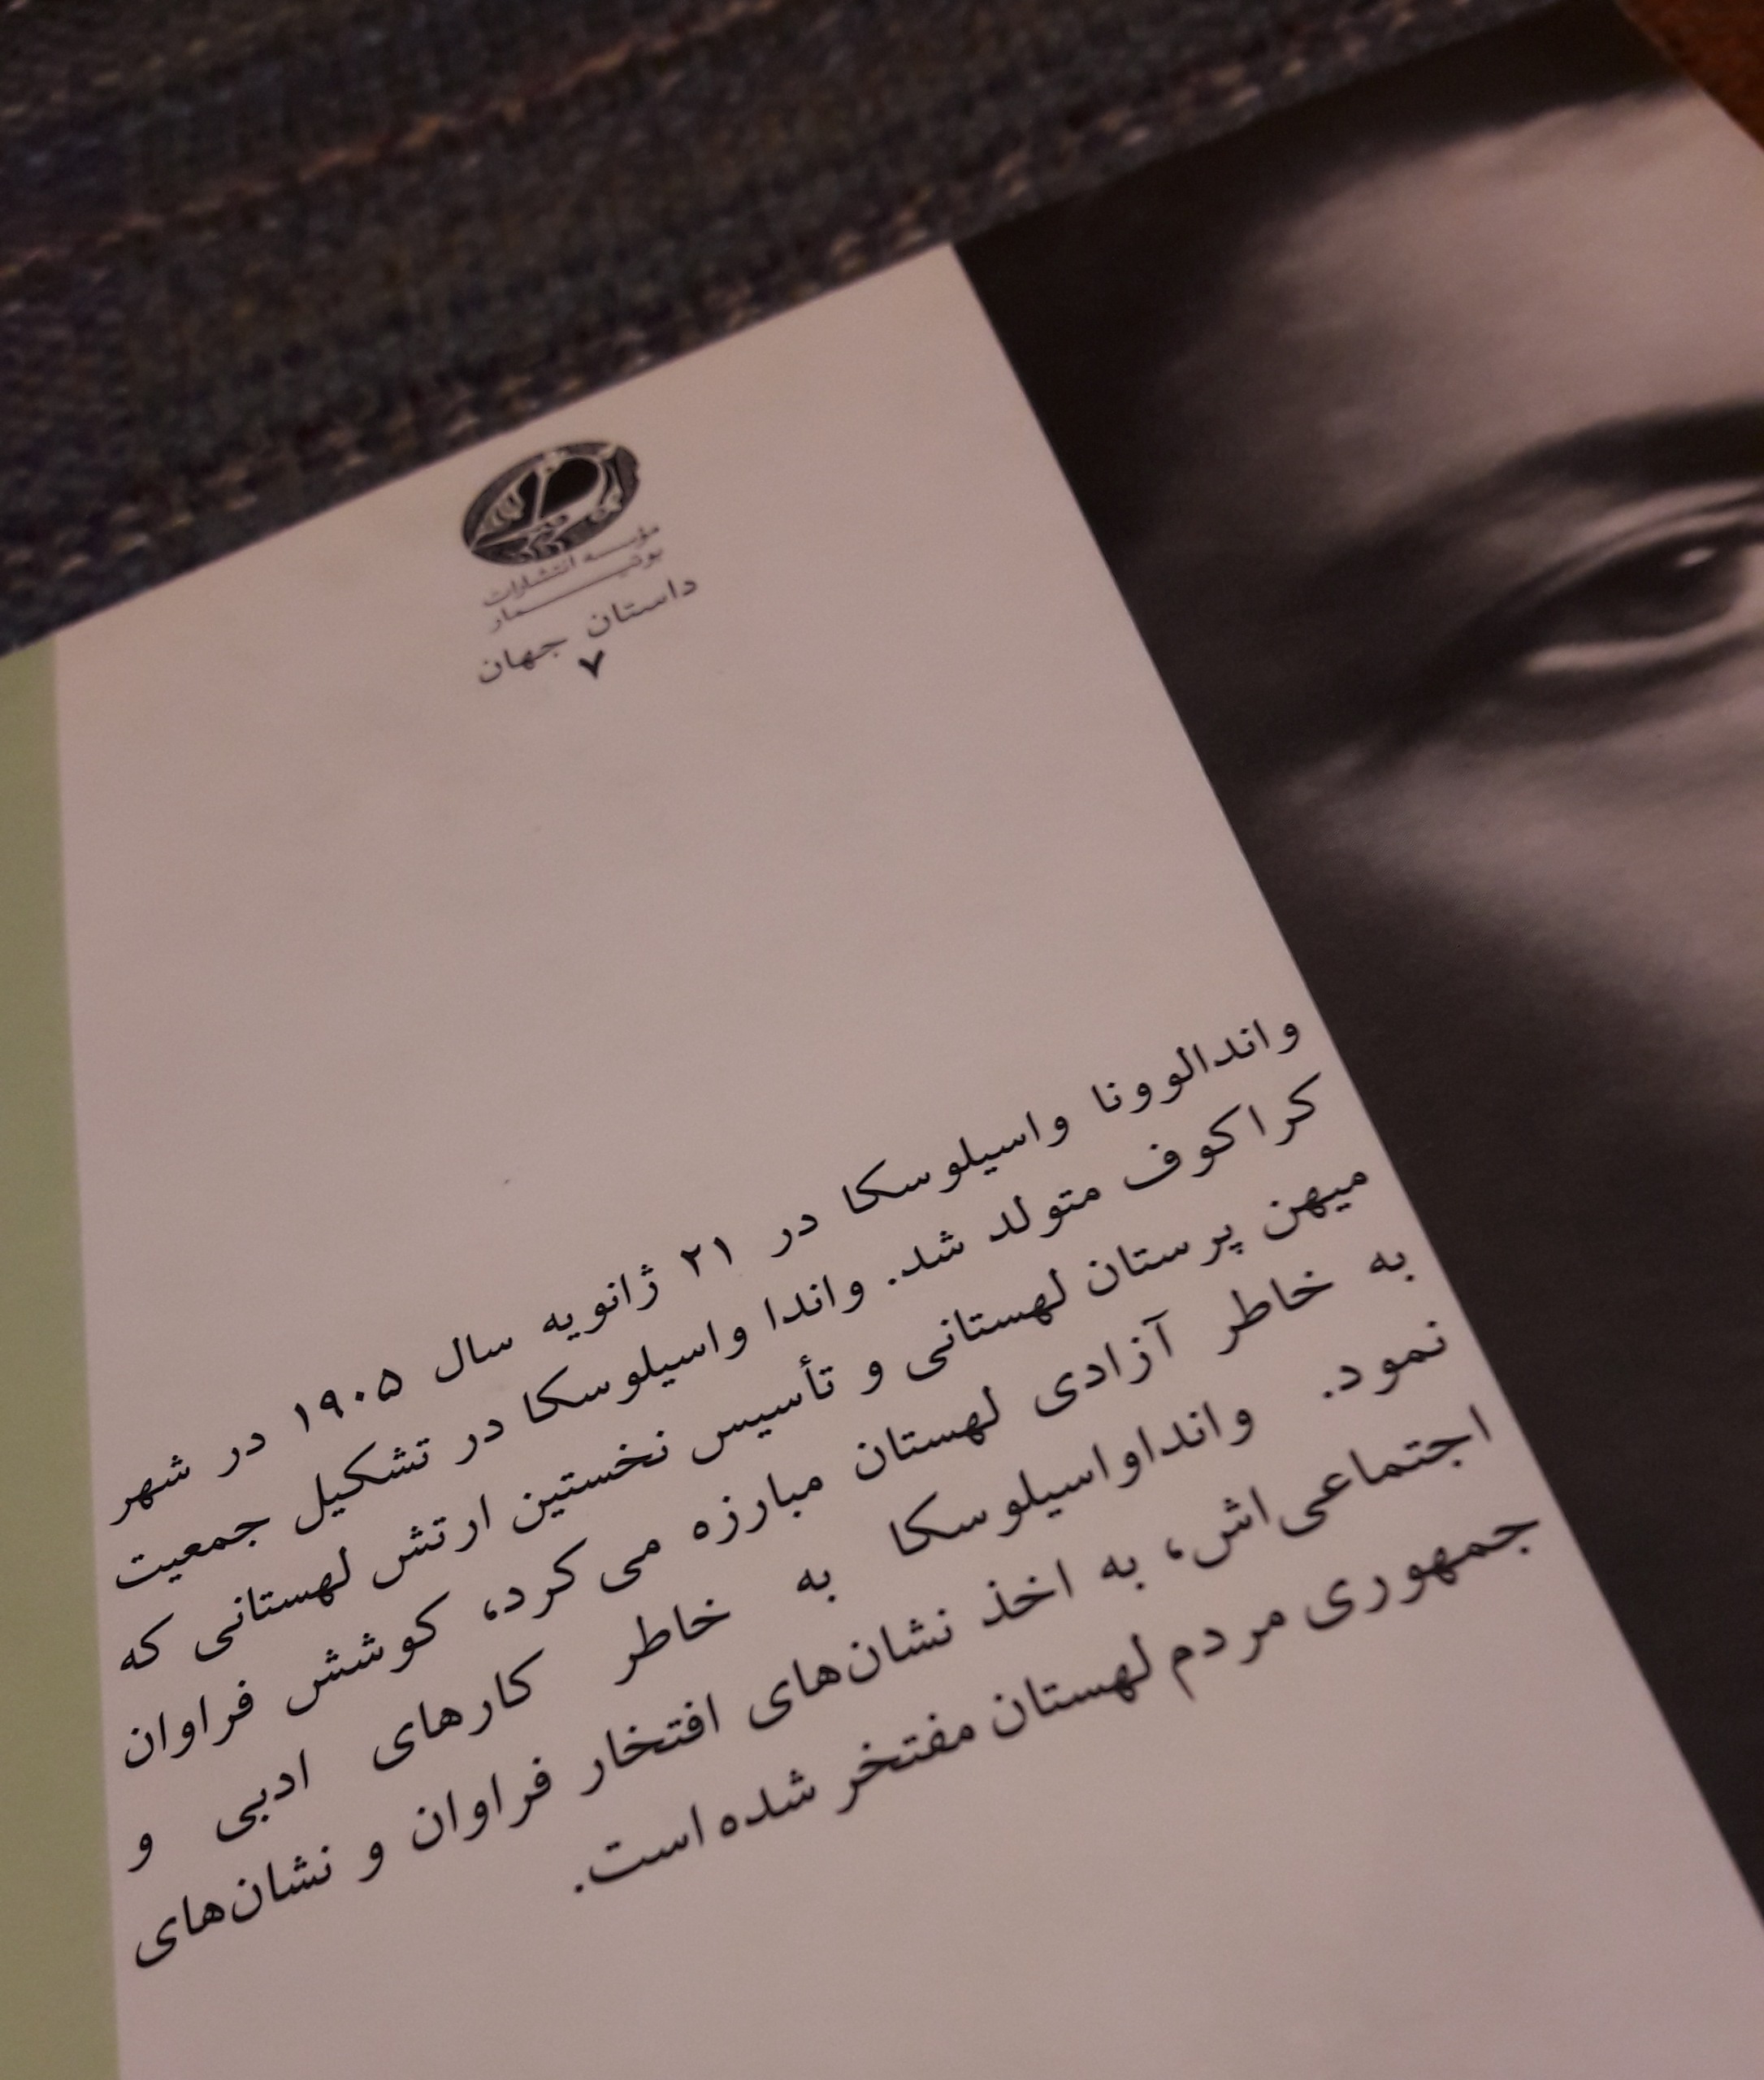 مؤسسه انتشارات
بوتیمار
داستان جهان
۷
واندالوونا واسیلوسکا در ۲۱ ژانویه سال ۱۹۰۵ در شهر
کراکوف متولد شد. واندا واسیلوسکا در تشکیل جمعیت
میهن پرستان لهستانی و تأسیس نخستین ارتش لهستانی که
به خاطر آزادی لهستان مبارزه می کرد، کوشش فراوان
نمود. وانداواسیلوسکا به خاطر کارهای ادبی و
اجتماعی‌اش، به اخذ نشان‌های افتخار فراوان و نشان‌های
جمهوری مردم لهستان مفتخر شده است.